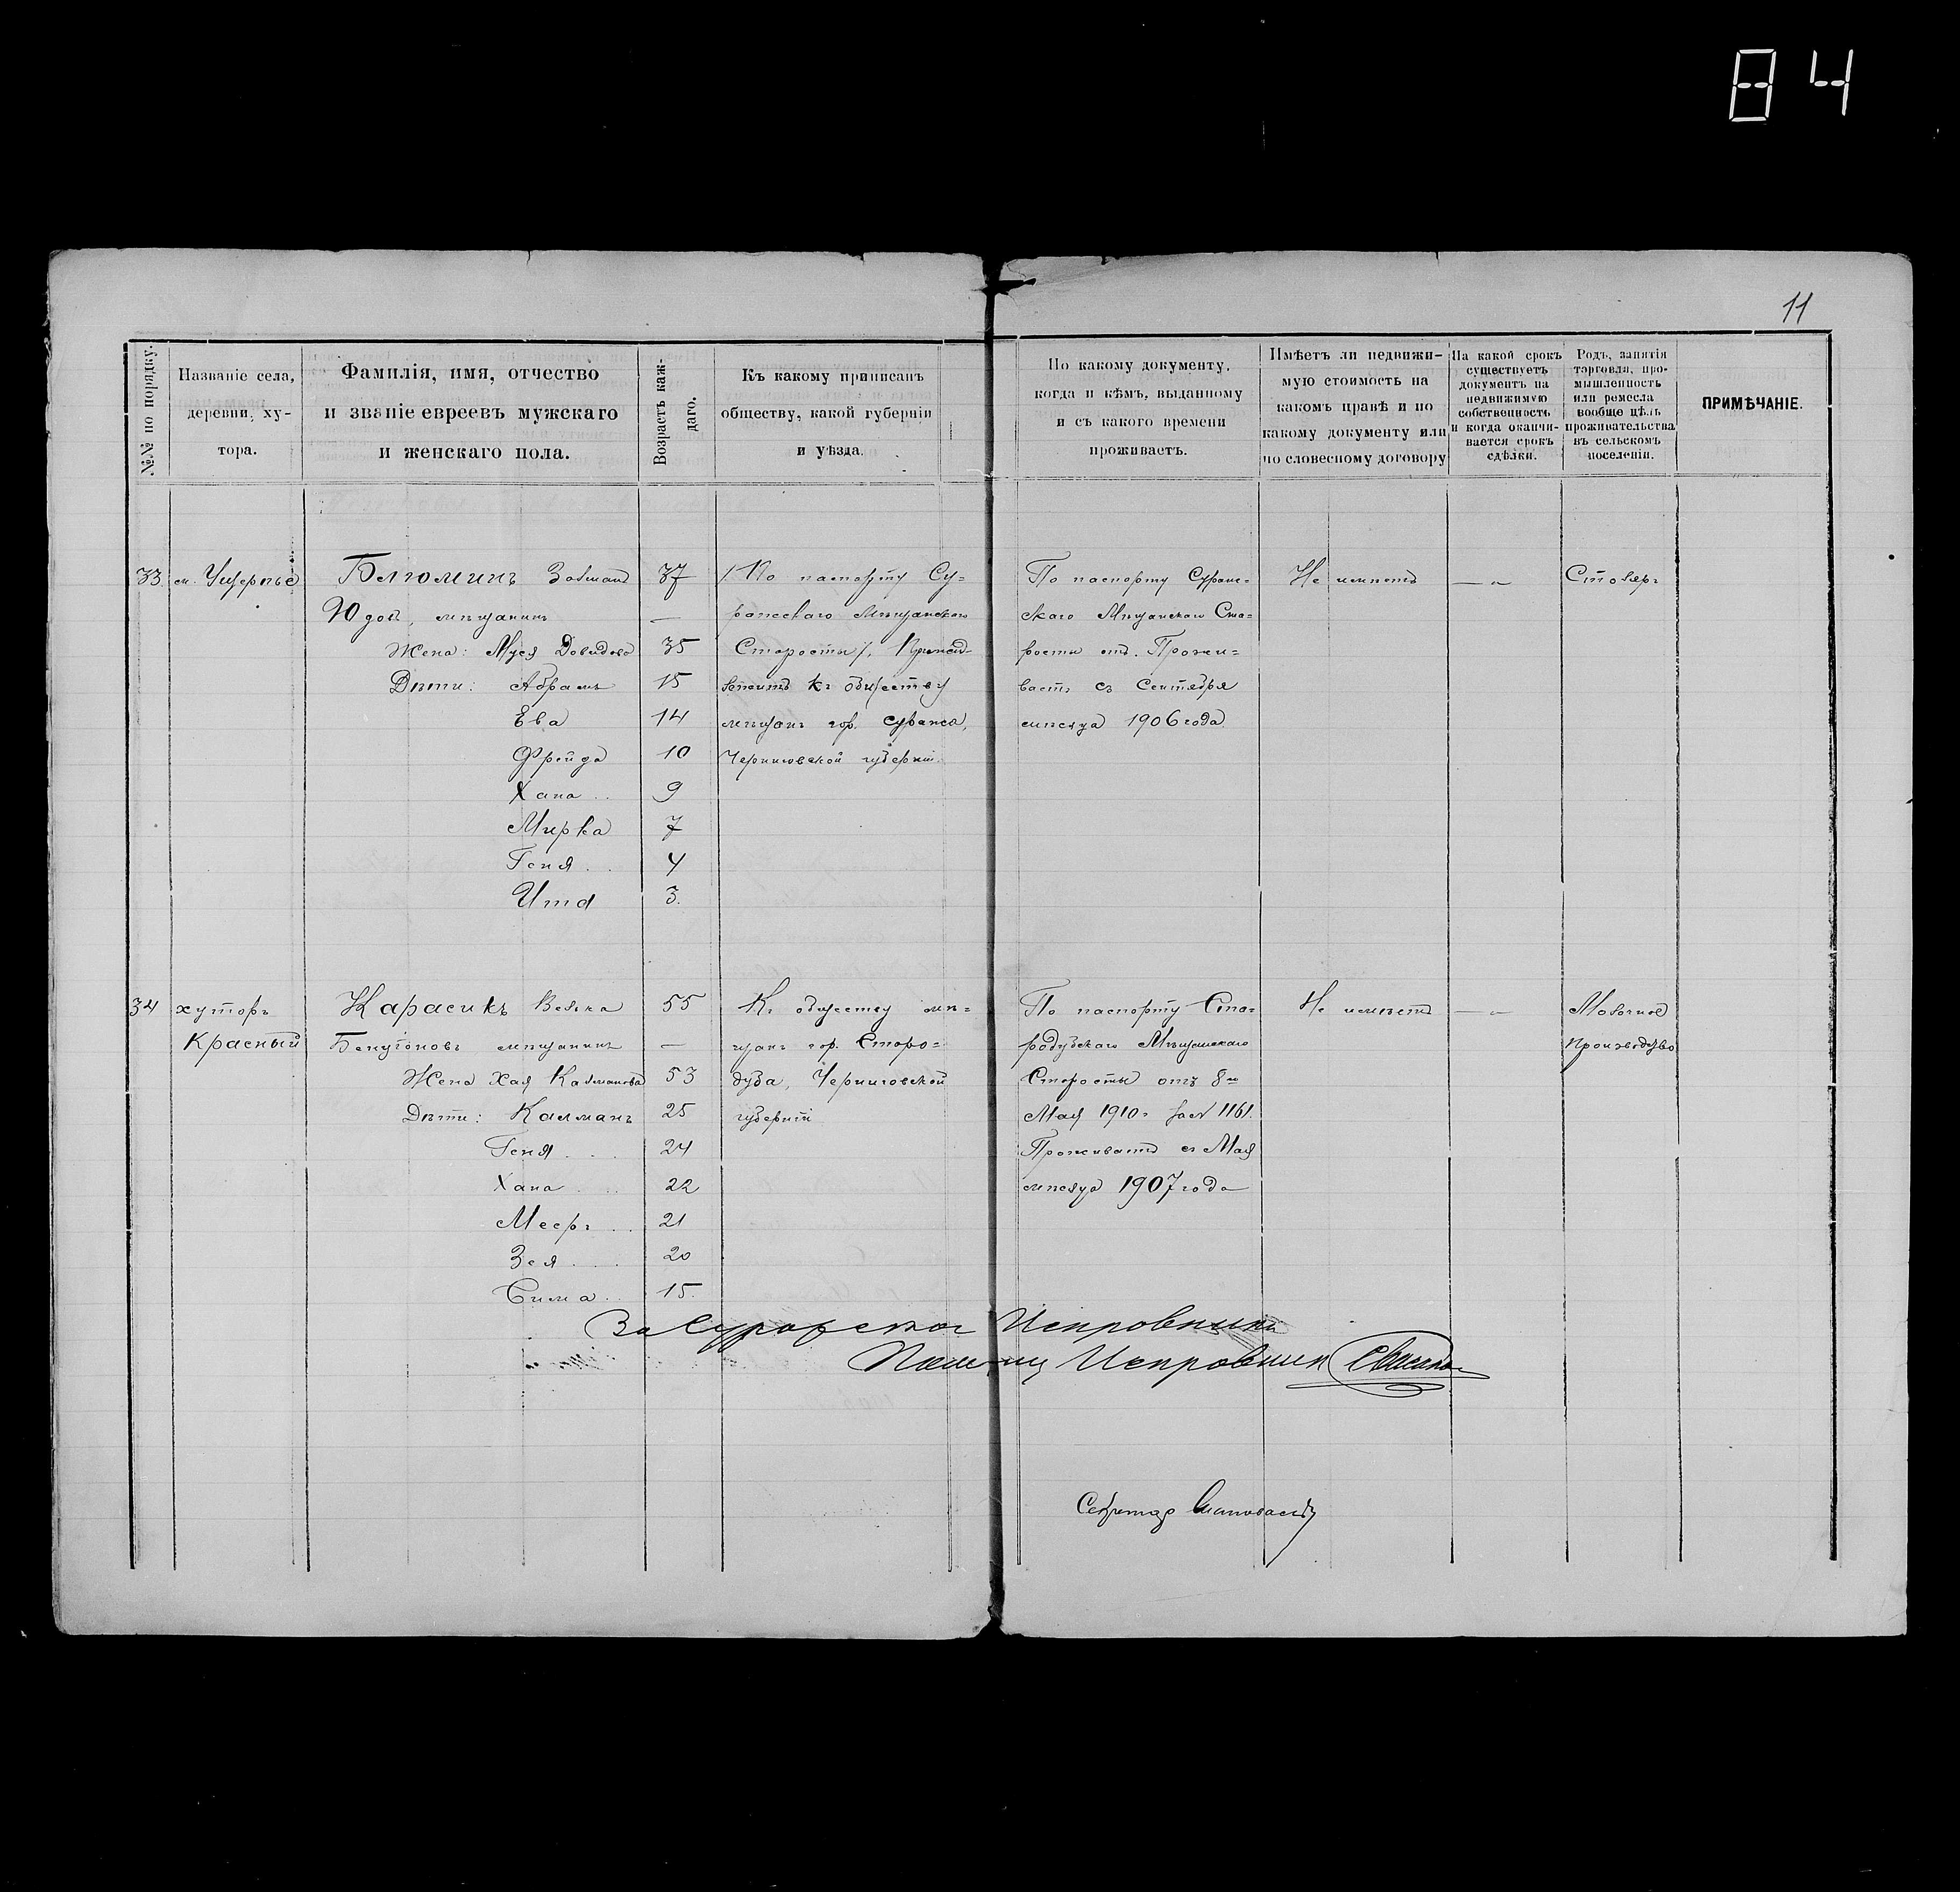 84
11
№№ по порядку.
Названіе села,
деревни, ху-
тора.
Фамилія, имя, отчество
и званіе евреевъ мужскаго
и женскаго пола.
Возрастъ каж-
даго.
Къ какому приписанъ
обществу, какой губерніи
и уѣзда.
По какому документу,
когда и кѣмъ, выданному
и съ какого времени
проживаетъ.
Имѣетъ ли недвижи-
мую стоимость на
какомъ правѣ и по
какому документу или
по словесному договору
На какой срокъ
существуетъ
документъ на
недвижимую
собственность
и когда оканчи-
вается срокъ
сдѣлки.
Родъ, занятія
торговля, про-
мышленность
или ремесла
вообще цѣль
проживательства
въ сельскомъ
поселеніи.
ПРИМѢЧАНІЕ.
33 м. Ущерпье
Белюминъ Залманъ 37
Юдов., мѣщанинъ —
Жена: Муся Довидова 35
Дѣти: Абрамъ 15
Ева 14
Фрейда 10
Хана 9
Мирка 7
Геня 4
Итя 3.
/По паспорту Су-
ражскаго Мѣщанскаго
Старосты/.
къ обществу
мѣщанъ гор. Суража,
Черниговской губерніи.
По паспорту Сураж-
скаго Мѣщанскаго Ста-
росты отъ. Прожи-
ваетъ съ Сентября
мѣсяца 1906 года
Не имѣетъ
— „ —
Столяръ
34 хуторъ
Красный
Карасикъ Велька 55
мѣщанинъ —
Жена Хая Калманова 53
Дѣти: Калманъ 25
Геня 24
Хана 22
Мееръ 21
Зея 20
Сима 15.
Къ обществу мѣ-
щанъ гор. Старо-
дуба, Черниговской
губерніи
По паспорту Ста-
родубскаго Мѣщанскаго
Старосты отъ 8го
Мая 1910г за № 1161.
Проживаетъ съ Мая
мѣсяца 1907 года
Не имѣетъ
— „ —
Молочное
производство
За Суражскаго Исправника
Помощ. Исправника
Секретарь